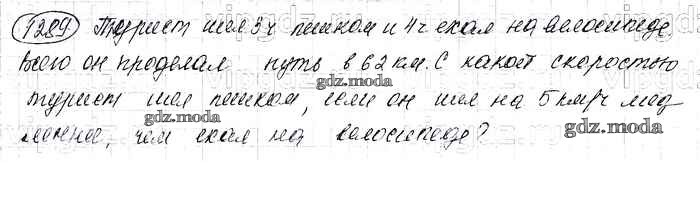 1289 Турист шел 3ч пешком и 4ч ехал на велосипеде
Всего он проделал путь в 62 км. С какой скоростью
gdz.moda
турист шел пешком, если он шел на 5 км/ч мед
gdz.moda
gdz.moda
леннее, чем ехал на велосипеде?